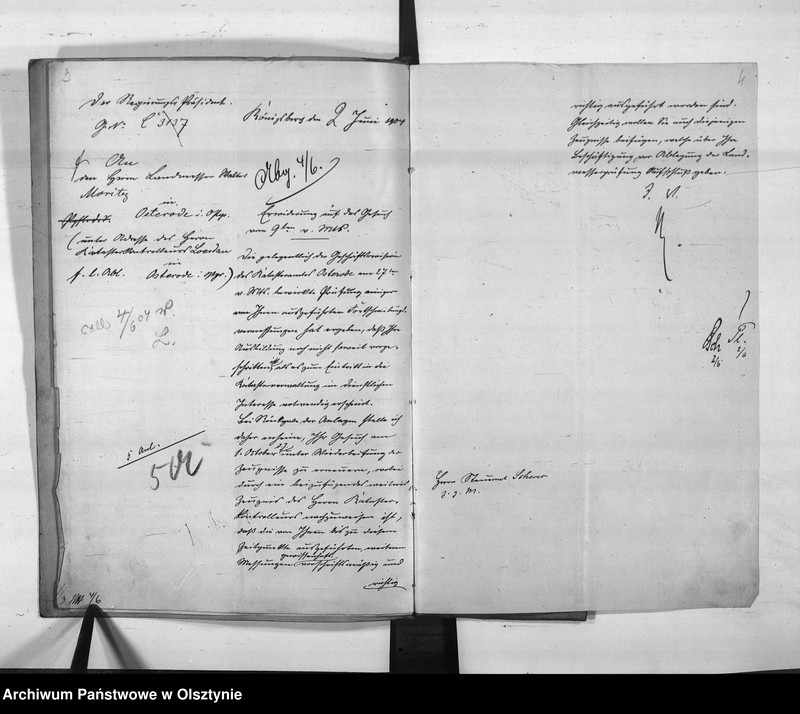 3
Der Regierungs Präsident.
G. N. C 3137
Königsberg den 2 Juni 1904
An
den Herrn Landmesser Walter
Moritz
in
Osterode i. Ostpr.
(unter Adresse des Herrn
Katasterkontrolleurs
in
Osterode i. Opr.)
4/6 04
5 Anl.
Abg. 4/6.
Erwiderung auf das Gesuch
vom 9ten v. Mts.
Die gelegentlich der Geschäftsrevision
des Katasteramtes Osterode am 27ten
v. Mts. bewirkte Prüfung einiger
von Ihnen ausgeführten Fortschreibungs-
vermessungen hat ergeben, daß Ihre
Ausbildung noch nicht soweit vorge-
schritten ist, als es zum Eintritt in die
Katasterverwaltung im dienstlichen
Interesse notwendig erscheint.
Bei Rückgabe der Anlagen stelle ich
daher anheim, Ihr Gesuch am
1. Oktober unter Wiederbeifügung der
Zeugnisse zu erneuern, wobei
durch ein beizufügendes weiteres
Zeugnis des Herrn Kataster-
kontrolleurs nachzuweisen ist,
daß die von Ihnen bis zu diesem
Zeitpunkte ausgeführten weiteren
Messungen vorschriftsmäßig und
richtig
4
richtig ausgeführt worden sind.
Gleichzeitig wollen Sie auch diejenigen
Zeugnisse beifügen, welche über Ihre
Beschäftigung vor Ablegung der Land-
messerprüfung Aufschluß geben.
2/6
2/6
Herrn
z. g. M.
4/6
Archiwum Państwowe w Olsztynie